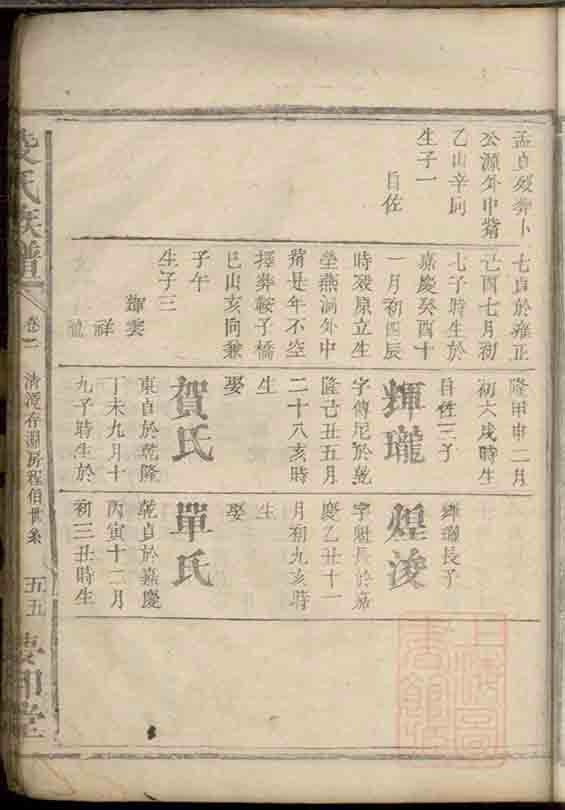 孟貞歿葬卜
公源外中嘴
乙山辛向
生子一
自佐
七貞於雍正
己酉七月初
七子時生於
嘉慶癸酉十
一月初四辰
時歿原立生
塋燕洞外中
嘴是年不空
擇葬鞍子橋
巳山亥向兼
子午
生子三
輝雲
祥
隆甲申二月
初六戌時生
自佐三子
輝瓏
字傳尼於乾
隆己丑五月
二十八亥時
生
娶
賀氏
東貞於乾隆
丁未九月十
九子時生於
輝瓏長子
煌浚
字魁長於嘉
慶乙丑十一
月初九亥時
生
娶
單氏
乾貞於嘉慶
丙寅十二月
初三丑時生
氏族譜
卷二
清溪存淵房程伯世系
五五